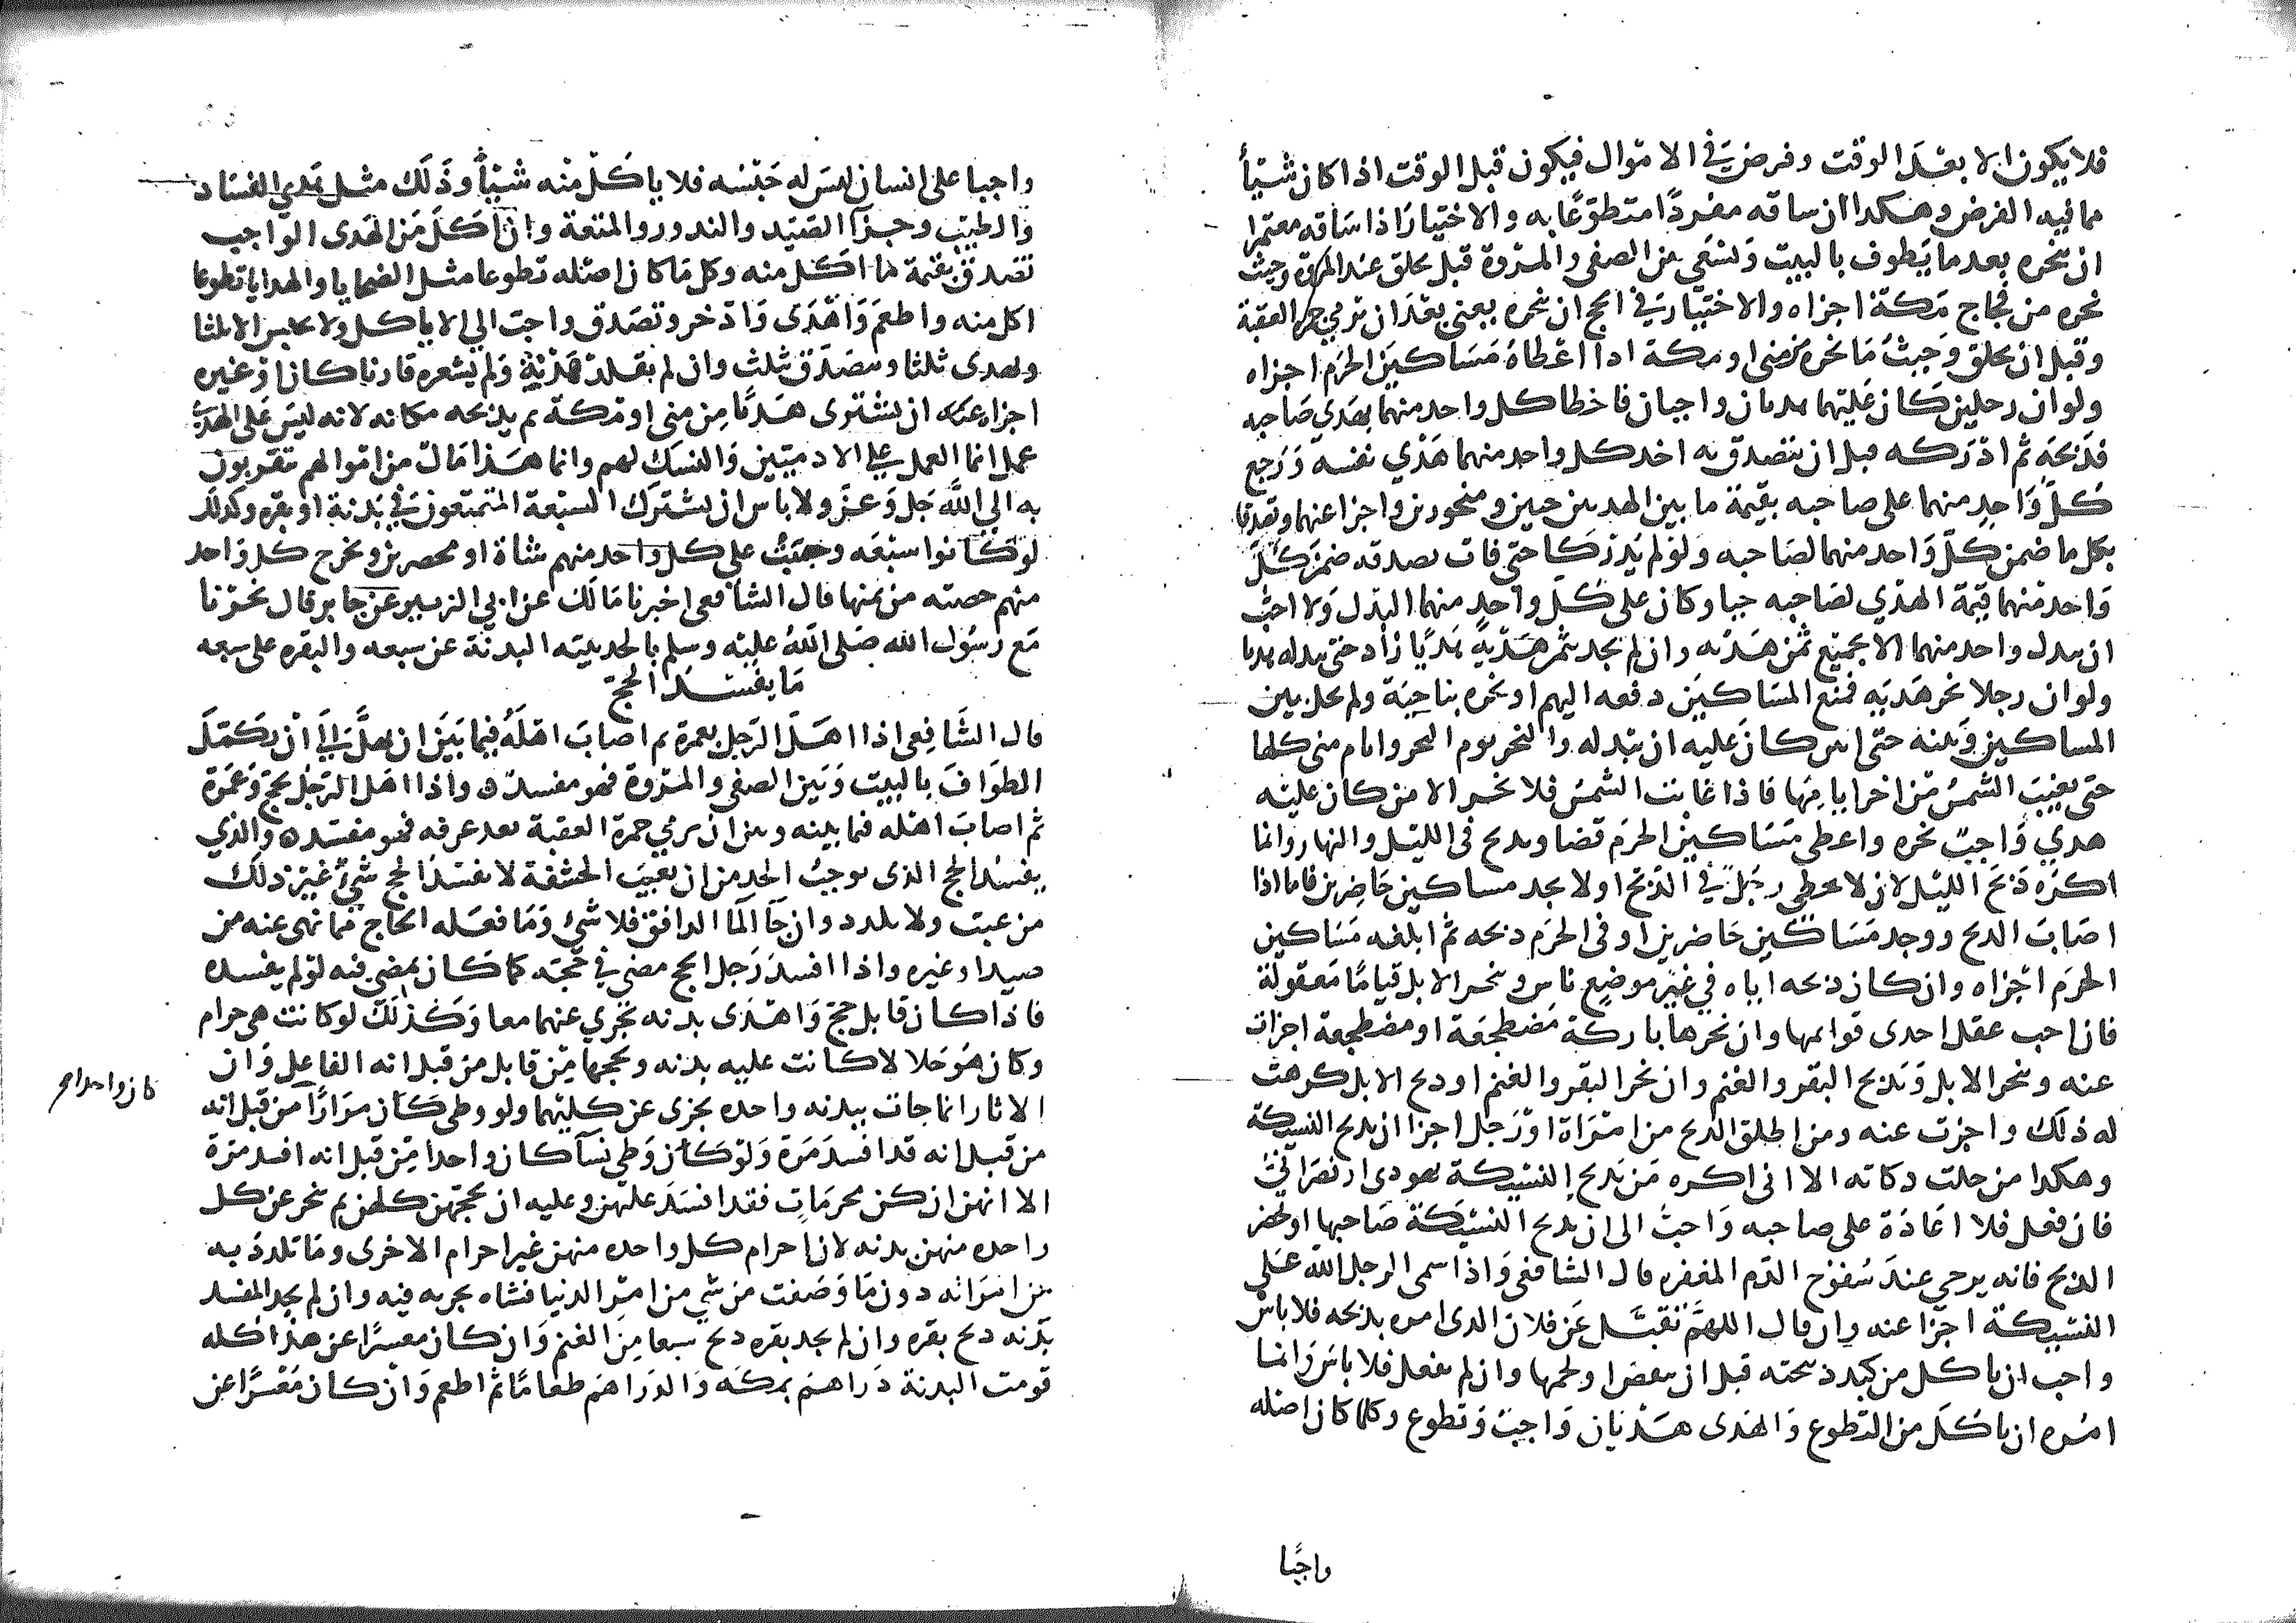 فلا يكون الا بعد الوقت وفرض في الاموال فيكون قبل الوقت اذا كان شيئا
مما فيه الفرض وهكذا ان ساقه مفردا متطوعا به والاختيار اذا ساقه معتمرا
ان ينحره بعد ما يطوف بالبيت ويسعى بين الصفى والمروة قبل يحلق عند المروة وحيث
نحره من فجاج مكة اجزاه والاختيار في الحج ان ينحره بمعنى بعد ان يرمي جمرة العقبة
وقبل ان يحلق وحيث ما نحره من منى او مكة اذا اعطاه مساكين الحرم اجزاه
ولو ان رجلين كان عليهما هديان واجبان فاخطا كل واحد منهما بهدي صاحبه
فذبحه ثم ادركه قبل ان يتصدق به اخد كل واحد منهما هدي نفسه ورجع
كل واحد منهما على صاحبه بقيمة ما بين الهديين حيين ومنحورين واجزا عنهما وتصدقا
بكل ما ضمن كل واحد منهما لصاحبه ولو لم يدركا حتى فات بصدقه ضمن كل
واحد منهما قيمة الهدي لصاحبه حيا وكان على كل واحد منهما البدل ولا احب
ان يبدل واحد منهما الا بجميع ثمن هديه وان لم يجد بثمن هديه هديا زاد حتى يبدله هديا
ولو ان رجلا نحر هديه فمنع المساكين دفعه اليهم او نحره بناحية ولم يخل بين
المساكين وبينه حتى انتن كان عليه ان يبدله والنحر يوم النحر وايام منى كلها
حتى تغيب الشمس من اخر ايامها فاذا غابت الشمس فلا نحر الا من كان عليه
هدي واجب نحره واعطى مساكين الحرم قضا ويذبح في الليل والنهار وانما
اكره ذبح الليل لان لا يخطي رجل في الذبح او لا يجد مساكين حاضرين فاما اذا
اصاب الذبح ووجد مساكين حاضرين او في الحرم ذبحه ثم ابلغه مساكين
الحرم اجزاه وان كان ذبحه اياه في غير موضع ناس وينحر الابل قياما معقولة
فان احب عقل احدى قوائمها وان نحرها باركة مضطجعة او مضطجعة اجزات
عنه وينحر الابل ويذبح البقر والغنم وان نحر البقر والغنم او ذبح الابل كرهت
له ذلك واجزت عنه ومن اطلق الذبح من امراة او رجل اجزا ان يذبح النسيكة
وهكذا من حلت ذكاته الا اني اكره من يذبح النسيكة يهودي او نصراني
فان فعل فلا اعادة على صاحبه واحب الي ان يذبح النسيكة صاحبها او يحضر
الذبح فانه يرجى عند سفوح الدم المغفرة قال الشافعي واذا سمى الرجل الله على
النسيكة اجزا عنه وان قال اللهم تقبل عن فلان الذي امره بذبحه فلا باس
واحب ان ياكل من كبد ذبيحته قبل ان يفيض او لحمها وان لم يفعل فلا باس وانما
امره ان ياكل من التطوع والهدى هديان واجب وتطوع وكلما كان اصله
واجبا
واجبا على انسان ليس له حبسه فلا ياكل منه شيئا وذلك مثل هدي الفساد
والطيب وجزآ الصيد والندور والمتعة وان اكل من الهدى الواجب
تصدق بقيمة ما اكل منه وكل ما كان اصله تطوعا مثل الضحايا والهدايا تطوعا
اكل منه واطعم واهدى وادخر وتصدق واحب الي الا ياكل ولا يحبس الا ثلثا
ويهدى ثلثا ويتصدق بثلث وان لم يقلد هديه ولم يشعره قارنا كان او غيره
اجزاه عنه ان يشترى هديا من منى او مكة ثم يذبحه مكانه لانه ليس على الهدي
عمل انما العمل على الادميين والنسك لهم وانما هذا مال من اموالهم يتقربون
به الي الله جل وعز ولا باس ان يشترك السبعة المتمتعون في بدنة او بقره وكذلك
لو كانوا سبعه وجبت على كل واحد منهم شاة او محصرين ويخرج كل واحد
منهم حصته من ثمنها قال الشافعي اخبرنا مالك عن ابي الزبير عن جابر قال نحرنا
مع رسول الله صلى الله عليه وسلم بالحديبيه البدنة عن سبعه والبقره على سبعه
ما يفسد الحج
قال الشافعي اذا اهل الرجل بعمرة ثم اصاب اهله فيما بين ان يهل الى ان يكمل
الطواف بالبيت وبين الصفى والمروة فهو مفسد واذا اهل الرجل بحج وعمرة
ثم اصاب اهله فما بينه وبين ان يرمي جمرة العقبة بعد عرفه فهو مفسد والذي
يفسد الحج الذى يوجب الحد من ان يغيب الحشفة لا يفسد الحج شي غير ذلك
من عبث ولا تلدد وان جآ المآ الدافق فلا شي وما فعله الحاج مما نهى عنه من
صيد او غيره واذا افسد رجل الحج مضى في حجه كما كان يمضي فيه لو لم يفسده
فاذا كان قابل حج واهدى بدنه تجزي عنهما معا وكذلك لو كانت هي حرام
وكان هو حلالا كانت عليه بدنه ويحجها من قابل من قبل انه الفاعل وان
الاثار انما جات ببدنه واحده تجزى عن كليهما ولو وطى كان مرارا من قبل انه
كان واحدا م
من قبل انه قد افسد مرة ولو كان وطي نسآ كان واحدا من قبل انه افسد مرة
الا انهن ان كن محرمات فقد افسد عليهن وعليه ان يحجهن كلهن ثم ينحر عن كل
واحده منهن بدنه لان احرام كل واحده منهن غير احرام الاخرى وما تلدد به
من امراته دون ما وصفت من شي من امر الدنيا فشاه تجزيه فيه وان لم يجد المفسد
بدنه ذبح بقره وان لم يجد بقره ذبح سبعا من الغنم وان كان معسرا عن هذا كله
قومت البدنة دراهم بمكه والدراهم طعاما ثم اطعم وان كان معسرا عن